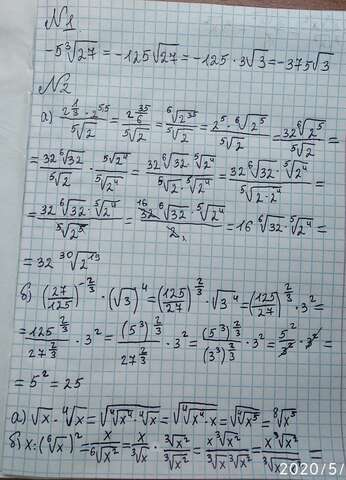 №1
-5∛27 = -125√27 = -125 · 3√3 = -375√3
№2
а) (2^(1/3) · 2^5,5)/⁵√2 = 2^(35/6)/⁵√2 = ⁶√2³⁵/⁵√2 = 2⁵ · ⁶√2⁵/⁵√2 = 32⁶√2⁵/⁵√2 =
= 32⁶√32/⁵√2 · ⁵√2⁴/⁵√2⁴ = 32⁶√32 · ⁵√2⁴/⁵√2 · ⁵√2⁴ = 32⁶√32 · ⁵√2⁴/⁵√2·2⁴ =
= 32⁶√32 · ⁵√2⁴/⁵√2⁵ = 16 32⁶√32 · ⁵√2⁴/2, = 16⁶√32 · ⁵√2⁴ =
= 32 ³⁰√2¹⁹
б) (27/125)^(-2/3) · (√3)⁴ = (125/27)^(2/3) · √3⁴ = (125/27)^(2/3) · 3² =
= 125^(2/3)/27^(2/3) · 3² = (5³)^(2/3)/27^(2/3) · 3² = (5³)^(2/3)/(3³)^(2/3) · 3² = 5²/3² · 3² =
= 5² = 25
а) √x · ⁴√x = √(⁴√x⁴ · ⁴√x) = √(⁴√x⁴ · x) = √(⁴√x⁵) = ⁸√x⁵
б) x : (⁶√x)² = x/⁶√x² = x/³√x · ³√x²/³√x² = x³√x²/³√x ³√x² = x³√x²/³√x x² =
2020/5/